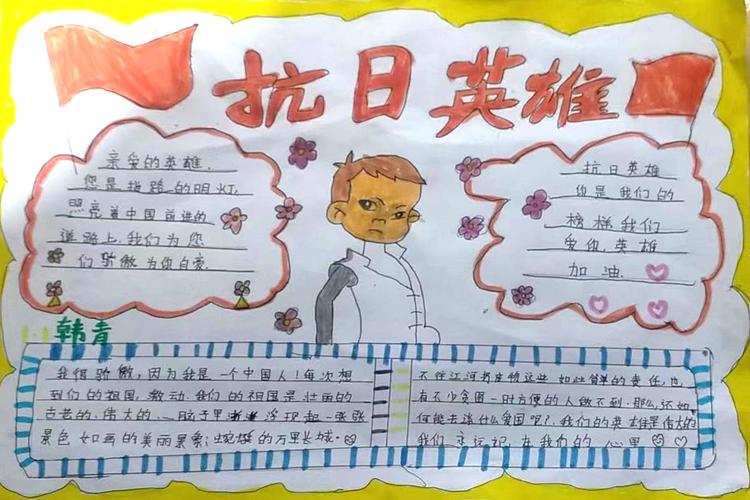 抗日英雄
亲爱的英雄.
您是指路的明灯.
照亮着中国前进的
道路上.我们为您
们骄傲为你自豪.
抗日英雄
你是我们的
榜样我们
爱你英雄
加油.
韩青
我很骄傲,因为我是一个中国人!每次想
到们的祖国,激动.我们的祖国是壮丽的
古老的.伟大的.一脑子里 浮现起一张张
景色如画的美丽景象:蜿蜒的万里长城。
不往江河 如此简单的责任,也
有不少贪图一时方便的人做不到.那么,还如
何能去谈什么爱国呢?.我们的英雄是伟大的
我们永远记在我们的心里